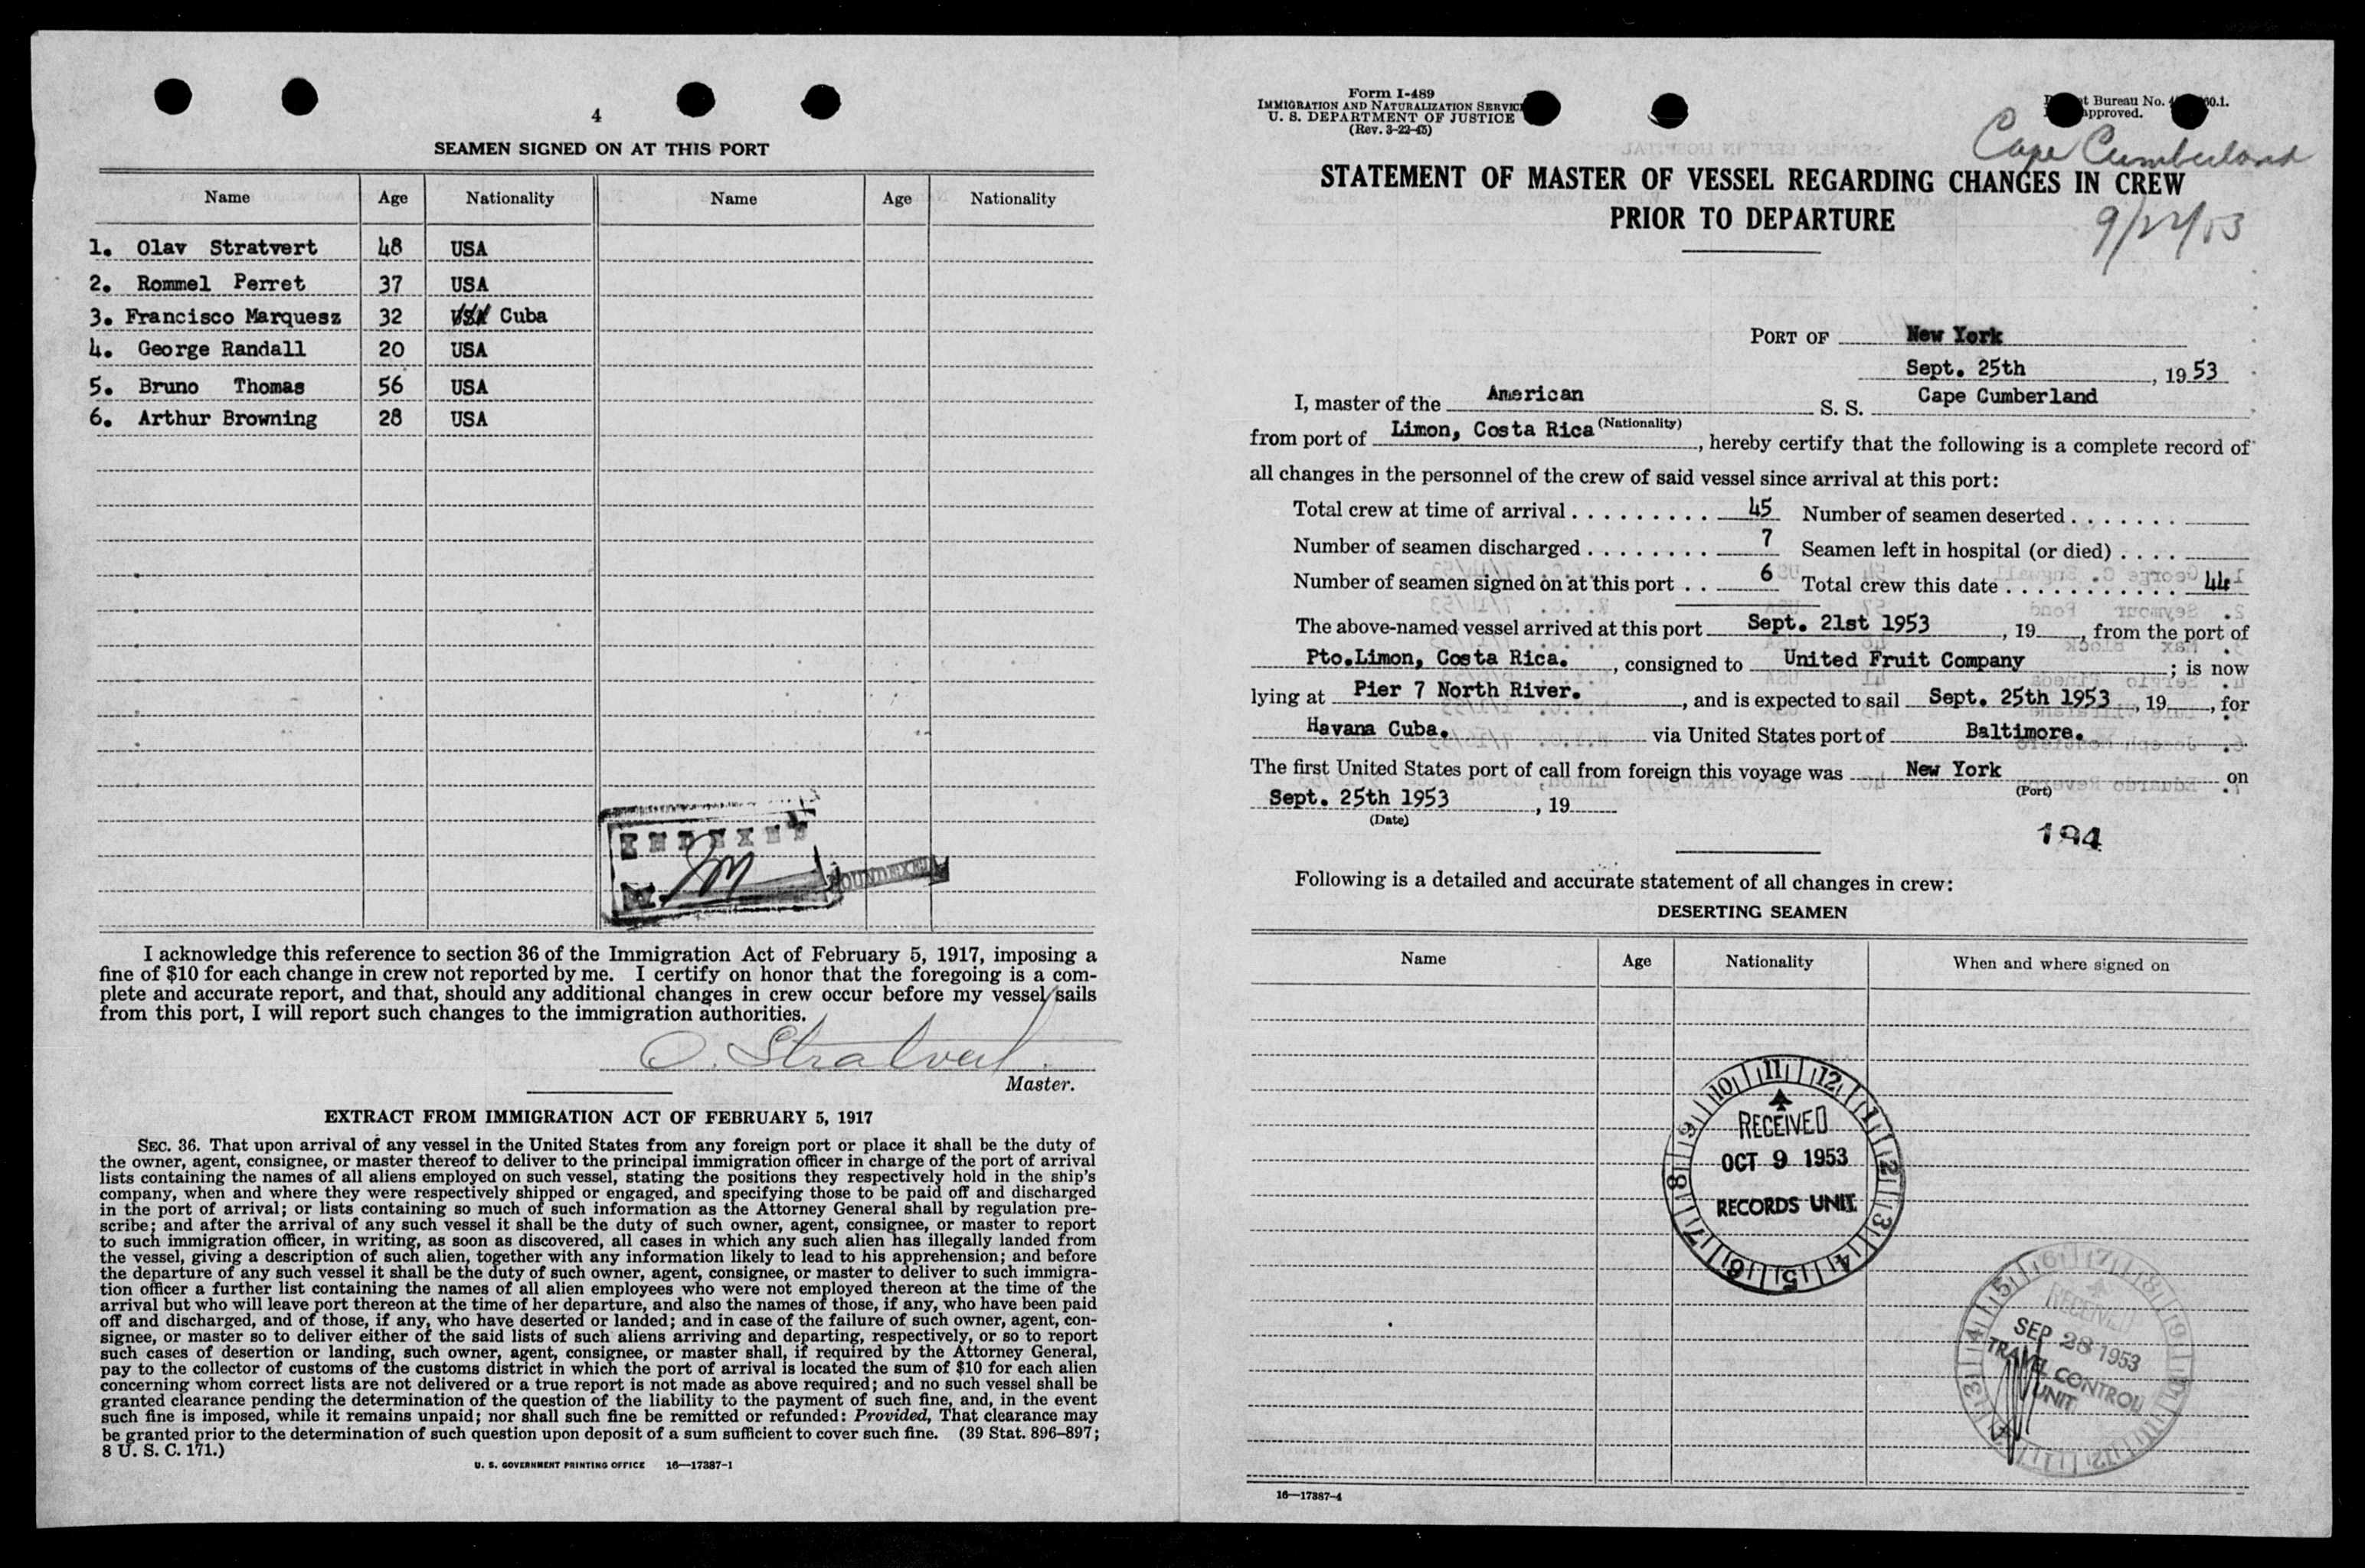 4
SEAMEN SIGNED ON AT THIS PORT
Name Age Nationality Name Age Nationality
1. Olav Stratvert 48 USA
2. Rommel Perret 37 USA
3. Francisco Marquesz 32 USA Cuba
4. George Randall 20 USA
5. Bruno Thomas 56 USA
6. Arthur Browning 28 USA
INDEXED
I acknowledge this reference to section 36 of the Immigration Act of February 5, 1917, imposing a
fine of $10 for each change in crew not reported by me. I certify on honor that the foregoing is a com-
plete and accurate report, and that, should any additional changes in crew occur before my vessel sails
from this port, I will report such changes to the immigration authorities.
O. Stratvert
Master.
EXTRACT FROM IMMIGRATION ACT OF FEBRUARY 5, 1917
SEC. 36. That upon arrival of any vessel in the United States from any foreign port or place it shall be the duty of
the owner, agent, consignee, or master thereof to deliver to the principal immigration officer in charge of the port of arrival
lists containing the names of all aliens employed on such vessel, stating the positions they respectively hold in the ship's
company, when and where they were respectively shipped or engaged, and specifying those to be paid off and discharged
in the port of arrival; or lists containing so much of such information as the Attorney General shall by regulation pre-
scribe; and after the arrival of any such vessel it shall be the duty of such owner, agent, consignee, or master to report
to such immigration officer, in writing, as soon as discovered, all cases in which any such alien has illegally landed from
the vessel, giving a description of such alien, together with any information likely to lead to his apprehension; and before
the departure of any such vessel it shall be the duty of such owner, agent, consignee, or master to deliver to such immigra-
tion officer a further list containing the names of all alien employees who were not employed thereon at the time of the
arrival but who will leave port thereon at the time of her departure, and also the names of those, if any, who have been paid
off and discharged, and of those, if any, who have deserted or landed; and in case of the failure of such owner, agent, con-
signee, or master so to deliver either of the said lists of such aliens arriving and departing, respectively, or so to report
such cases of desertion or landing, such owner, agent, consignee, or master shall, if required by the Attorney General,
pay to the collector of customs of the customs district in which the port of arrival is located the sum of $10 for each alien
concerning whom correct lists are not delivered or a true report is not made as above required; and no such vessel shall be
granted clearance pending the determination of the question of the liability to the payment of such fine, and, in the event
such fine is imposed, while it remains unpaid; nor shall such fine be remitted or refunded: Provided, That clearance may
be granted prior to the determination of such question upon deposit of a sum sufficient to cover such fine. (39 Stat. 896–897;
8 U. S. C. 171.)
U. S. GOVERNMENT PRINTING OFFICE 16—17387-1
Form I-489
IMMIGRATION AND NATURALIZATION SERVICE
U. S. DEPARTMENT OF JUSTICE
(Rev. 3-22-45)
Bureau No.
approved.
Cape Cumberland
STATEMENT OF MASTER OF VESSEL REGARDING CHANGES IN CREW
PRIOR TO DEPARTURE
PORT OF New York
Sept. 25th, 1953
I, master of the American S. S. Cape Cumberland
(Nationality)
from port of Limon, Costa Rica, hereby certify that the following is a complete record of
all changes in the personnel of the crew of said vessel since arrival at this port:
Total crew at time of arrival . . . . . . . . . 45 Number of seamen deserted . . . . . . .
Number of seamen discharged . . . . . . . . 7 Seamen left in hospital (or died) . . . .
Number of seamen signed on at this port . . 6 Total crew this date . . . . . . . . . . . . 44
The above-named vessel arrived at this port Sept. 21st 1953, 19, from the port of
Pto.Limon, Costa Rica., consigned to United Fruit Company; is now
lying at Pier 7 North River., and is expected to sail Sept. 25th 1953, 19, for
Havana Cuba. via United States port of Baltimore.
The first United States port of call from foreign this voyage was New York on
(Port)
Sept. 25th 1953, 19
(Date)
194
Following is a detailed and accurate statement of all changes in crew:
DESERTING SEAMEN
Name Age Nationality When and where signed on
10 11 12 1 2 3 4 5 6 7 8 9
RECEIVED
OCT 9 1953
RECORDS UNIT
RECEIVED
SEP 28 1953
TRAVEL CONTROL
UNIT
16—17387-4